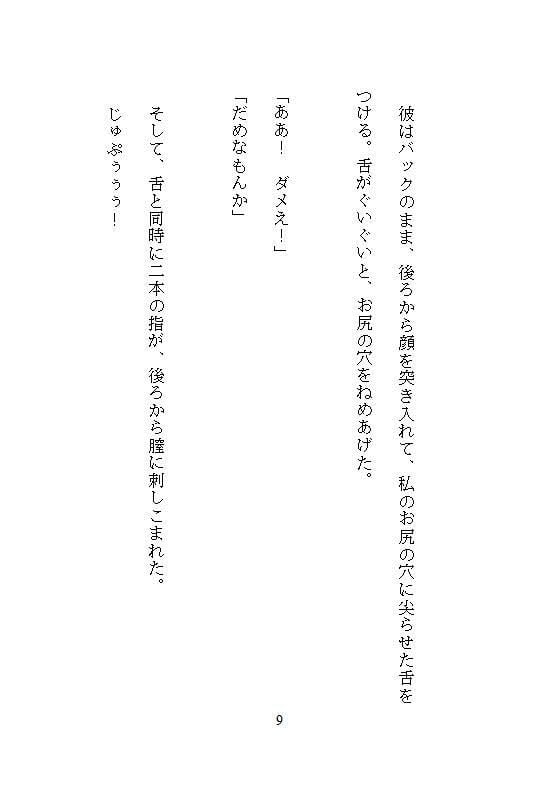 彼はバックのまま、後ろから顔を突き入れて、私のお尻の穴に尖らせた舌を
つける。舌がぐいぐいと、お尻の穴をねめあげた。
「ああ！　ダメえ！」
「だめなもんか」
そして、舌と同時に二本の指が、後ろから膣に刺しこまれた。
じゅぷぅぅぅ！
9